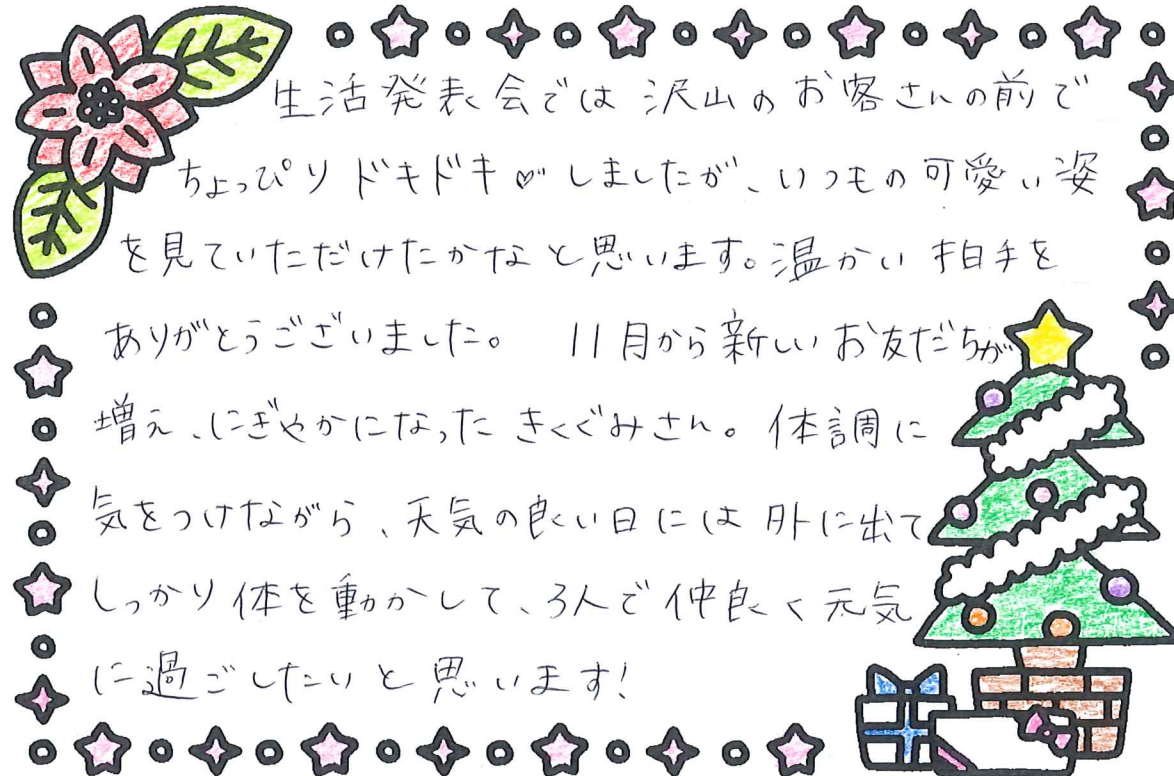 生活発表会では沢山のお客さんの前で
ちょっぴりドキドキ♡しましたが、いつもの可愛い姿
を見ていただけたかなと思います。温かい拍手を
ありがとうございました。 11月から新しいお友だちが
増え、にぎやかになったきくぐみさん。体調に
気をつけながら、天気の良い日には外に出て
しっかり体を動かして、3人で仲良く元気
に過ごしたいと思います!